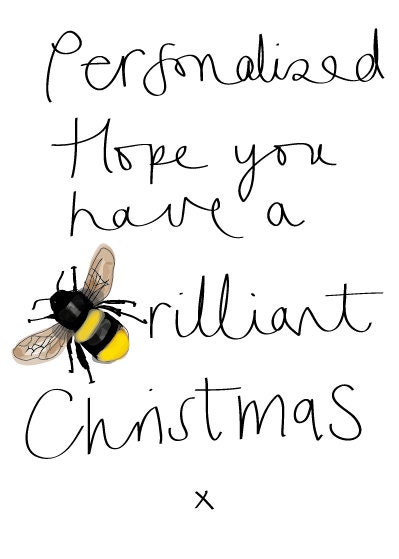 Personalised
Hope you
have a
rilliant
Christmas
x